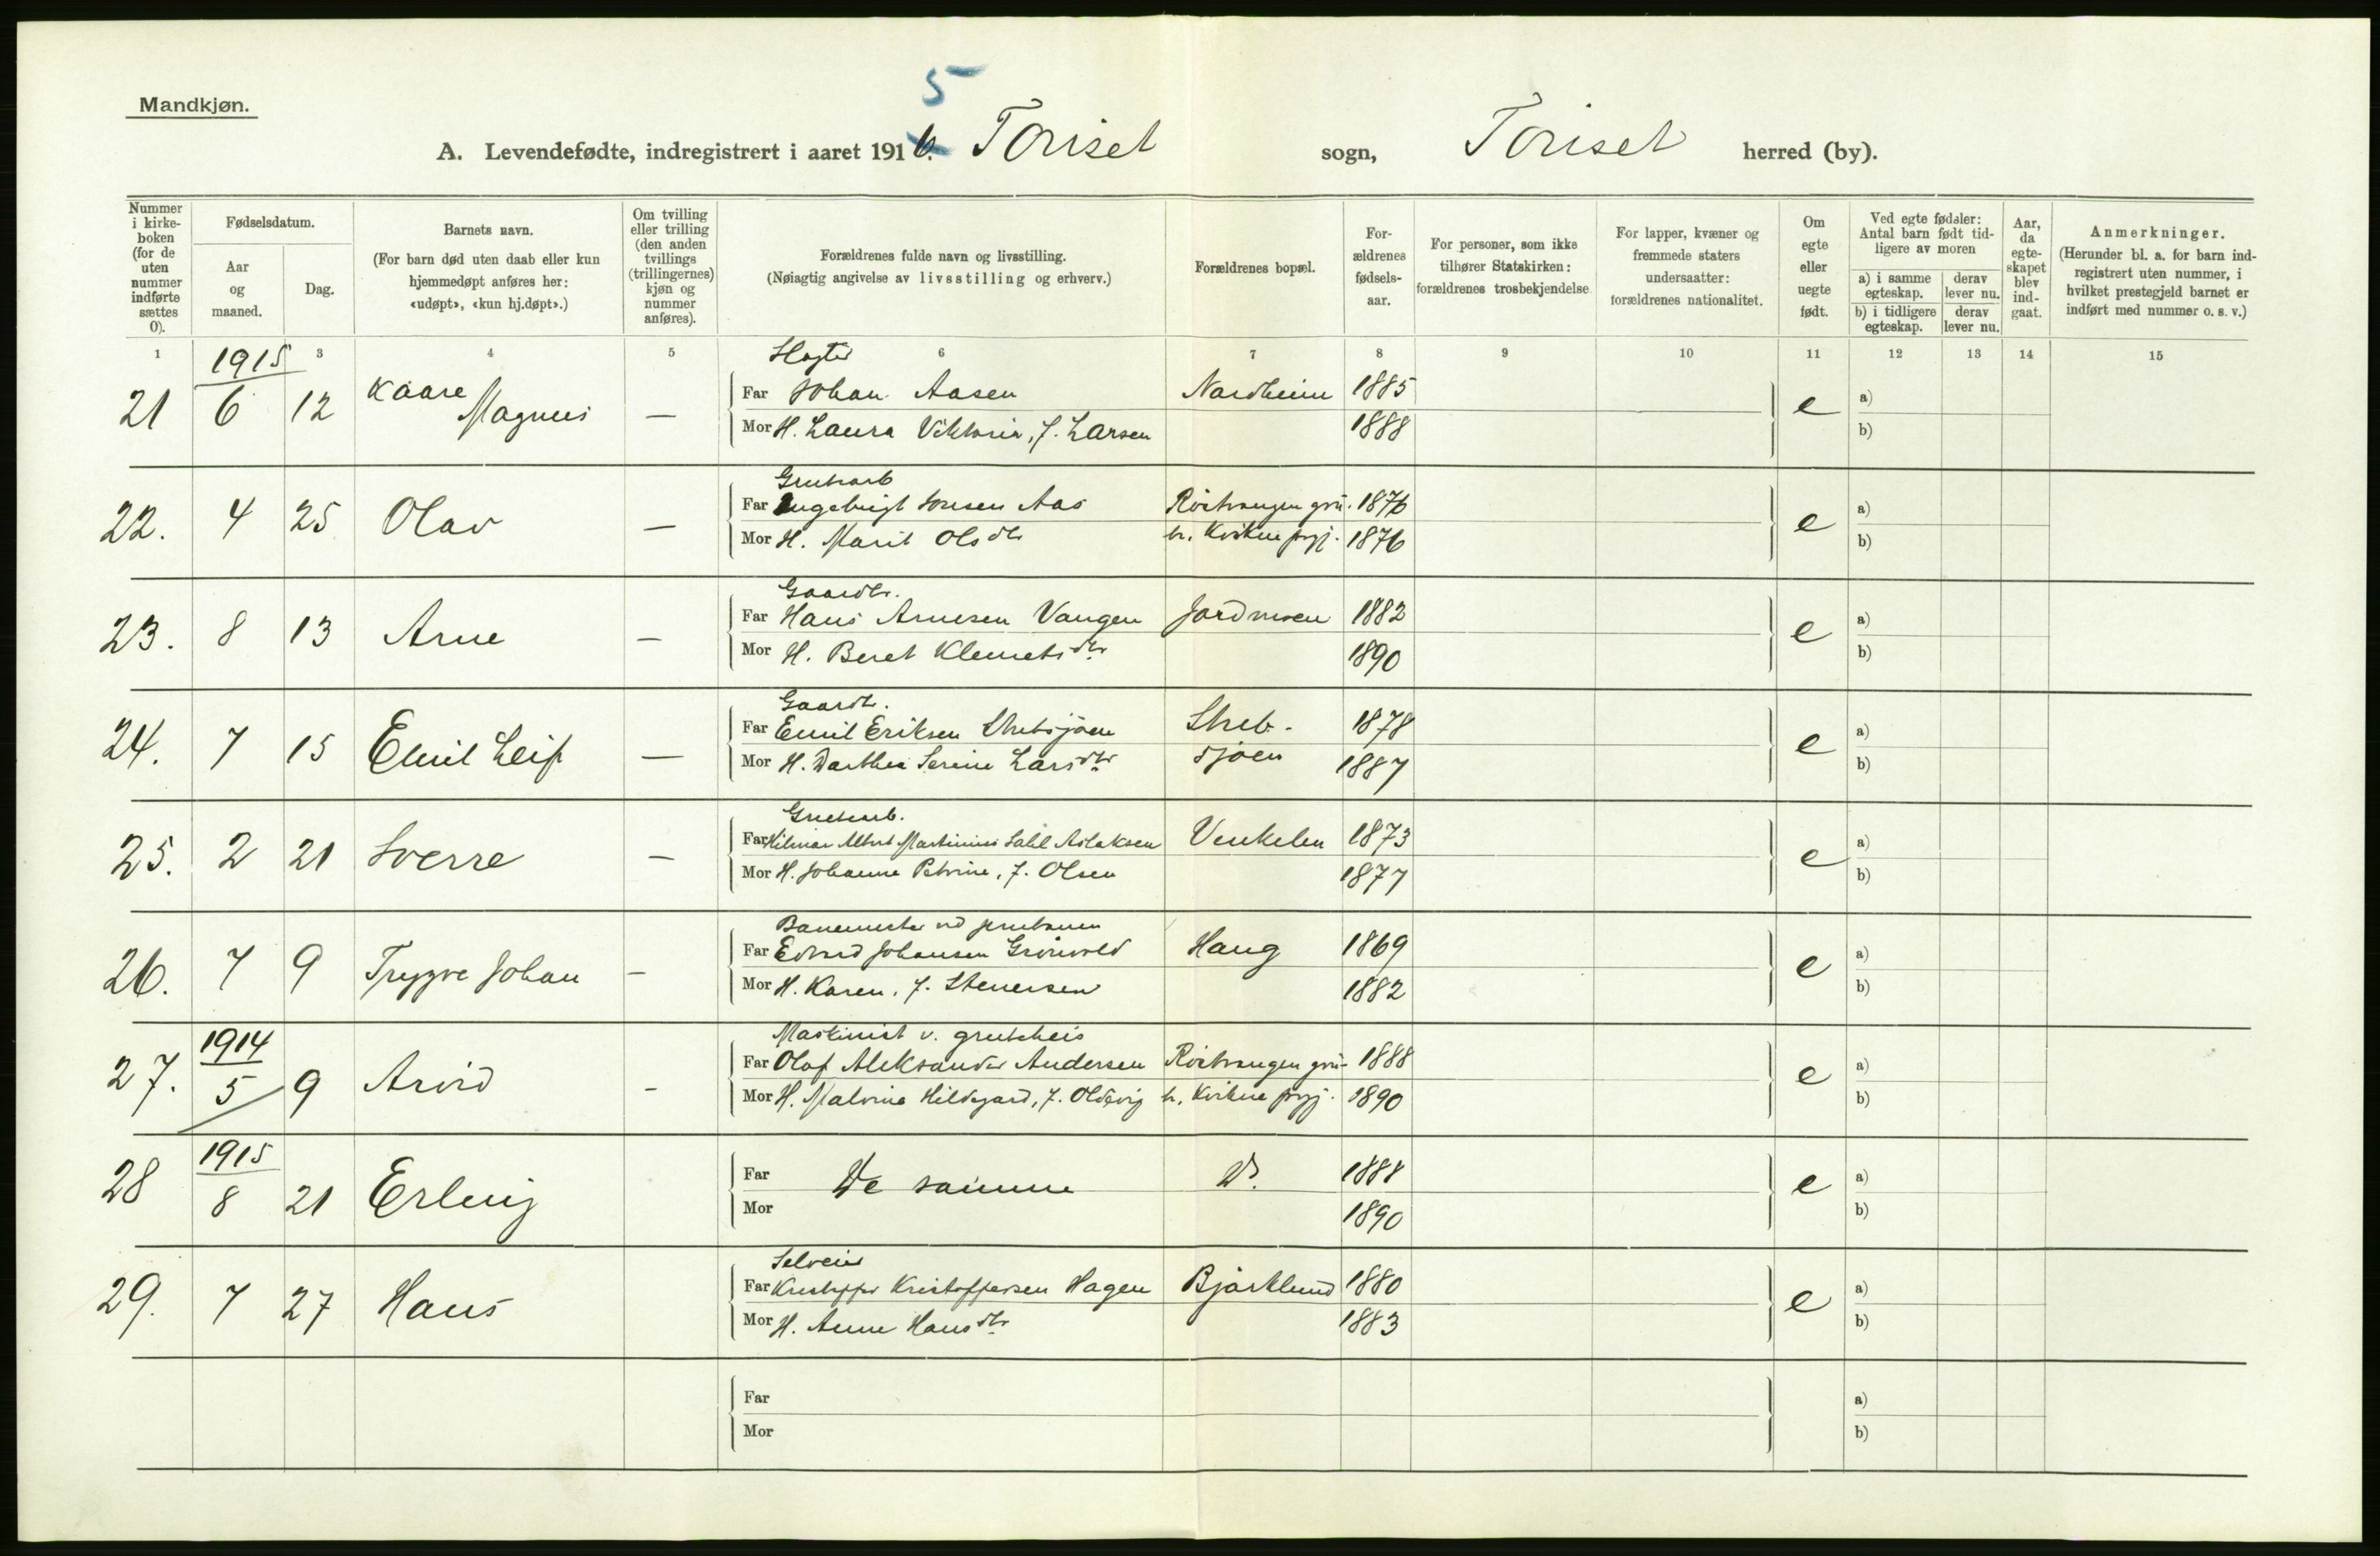 Mandkjøn.
5
A. Levendefødte, indregistrert i aaret 1916. Tonset sogn, Tonset herred (by).
Nummer i kirke-boken (for de uten nummer indførte sættes 0).
Fødselsdatum.
Aar og maaned.
Dag.
Barnets navn.
(For barn død uten daab eller kun hjemmedøpt anføres her: «udøpt», «kun hj.døpt».)
Om tvilling eller trilling (den anden tvillings (trillingernes) kjøn og nummer anføres).
Forældrenes fulde navn og livsstilling.
(Nøiagtig angivelse av livsstilling og erhverv.)
Forældrenes bopæl.
For-ældrenes fødsels-aar.
For personer, som ikke tilhører Statskirken: forældrenes trosbekjendelse.
For lapper, kvæner og fremmede staters undersaatter: forældrenes nationalitet.
Om egte eller uegte født.
Ved egte fødsler: Antal barn født tid-ligere av moren
a) i samme egteskap.
derav lever nu.
b) i tidligere egteskap.
derav lever nu.
Aar, da egte-skapet blev ind-gaat.
Anmerkninger.
(Herunder bl. a. for barn ind-registrert uten nummer, i hvilket prestegjeld barnet er indført med nummer o. s. v.)
1 3 4 5 6 7 8 9 10 11 12 13 14 15
1915
21 6 12 Kaare Magnus —
Far Johan Aasen Nordheim 1885 e a)
Mor H. Laura Viktoria, f. Larsen 1888 b)
Grubearb
22. 4 25 Olav —
Far Ingebrigt Jonsen Aas Röstvangen gru- 1876 e a)
Mor H. Marit Olsdtr br. Kvikne prgj. 1876 b)
Gaardbr.
23. 8 13 Arne —
Far Hans Arnesen Vangen Jordmoen 1882 e a)
Mor H. Beret Klemetsdtr 1890 b)
Gaardb.
24. 7 15 Emil Leif —
Far Emil Eriksen Strebsjöen Streb- 1878 e a)
Mor H. Dorthea Serine Larsdtr sjöen 1887 b)
Grubearb.
25. 2 21 Sverre —
Far Hilmar Albert Martinius Aslaksen 1873 e a)
Mor H. Johanne Petrine, f. Olsen 1877 b)
Banemester ved grubanen
26. 7 9 Trygve Johan —
Far Edvard Johansen Grönvold Haug 1869 e a)
Mor H. Karen, f. Stenersen 1882 b)
Maskinist v. grubeheis
1914
27. 5 9 Arvid -
Far Olaf Aleksander Andersen Röstvangen gru- 1888 e a)
Mor H. Malvine Hildegard, f. br. Kvikne prgj. 1890 b)
1915
28 8 21 Erling
Far De samme D. 1888 e a)
Mor 1890 b)
Selveier
29. 7 27 Hans
Far Kristoffer Kristoffersen Hagen Bjørklund 1880 e a)
Mor H. Anne Hansdtr 1883 b)
Far a)
Mor b)